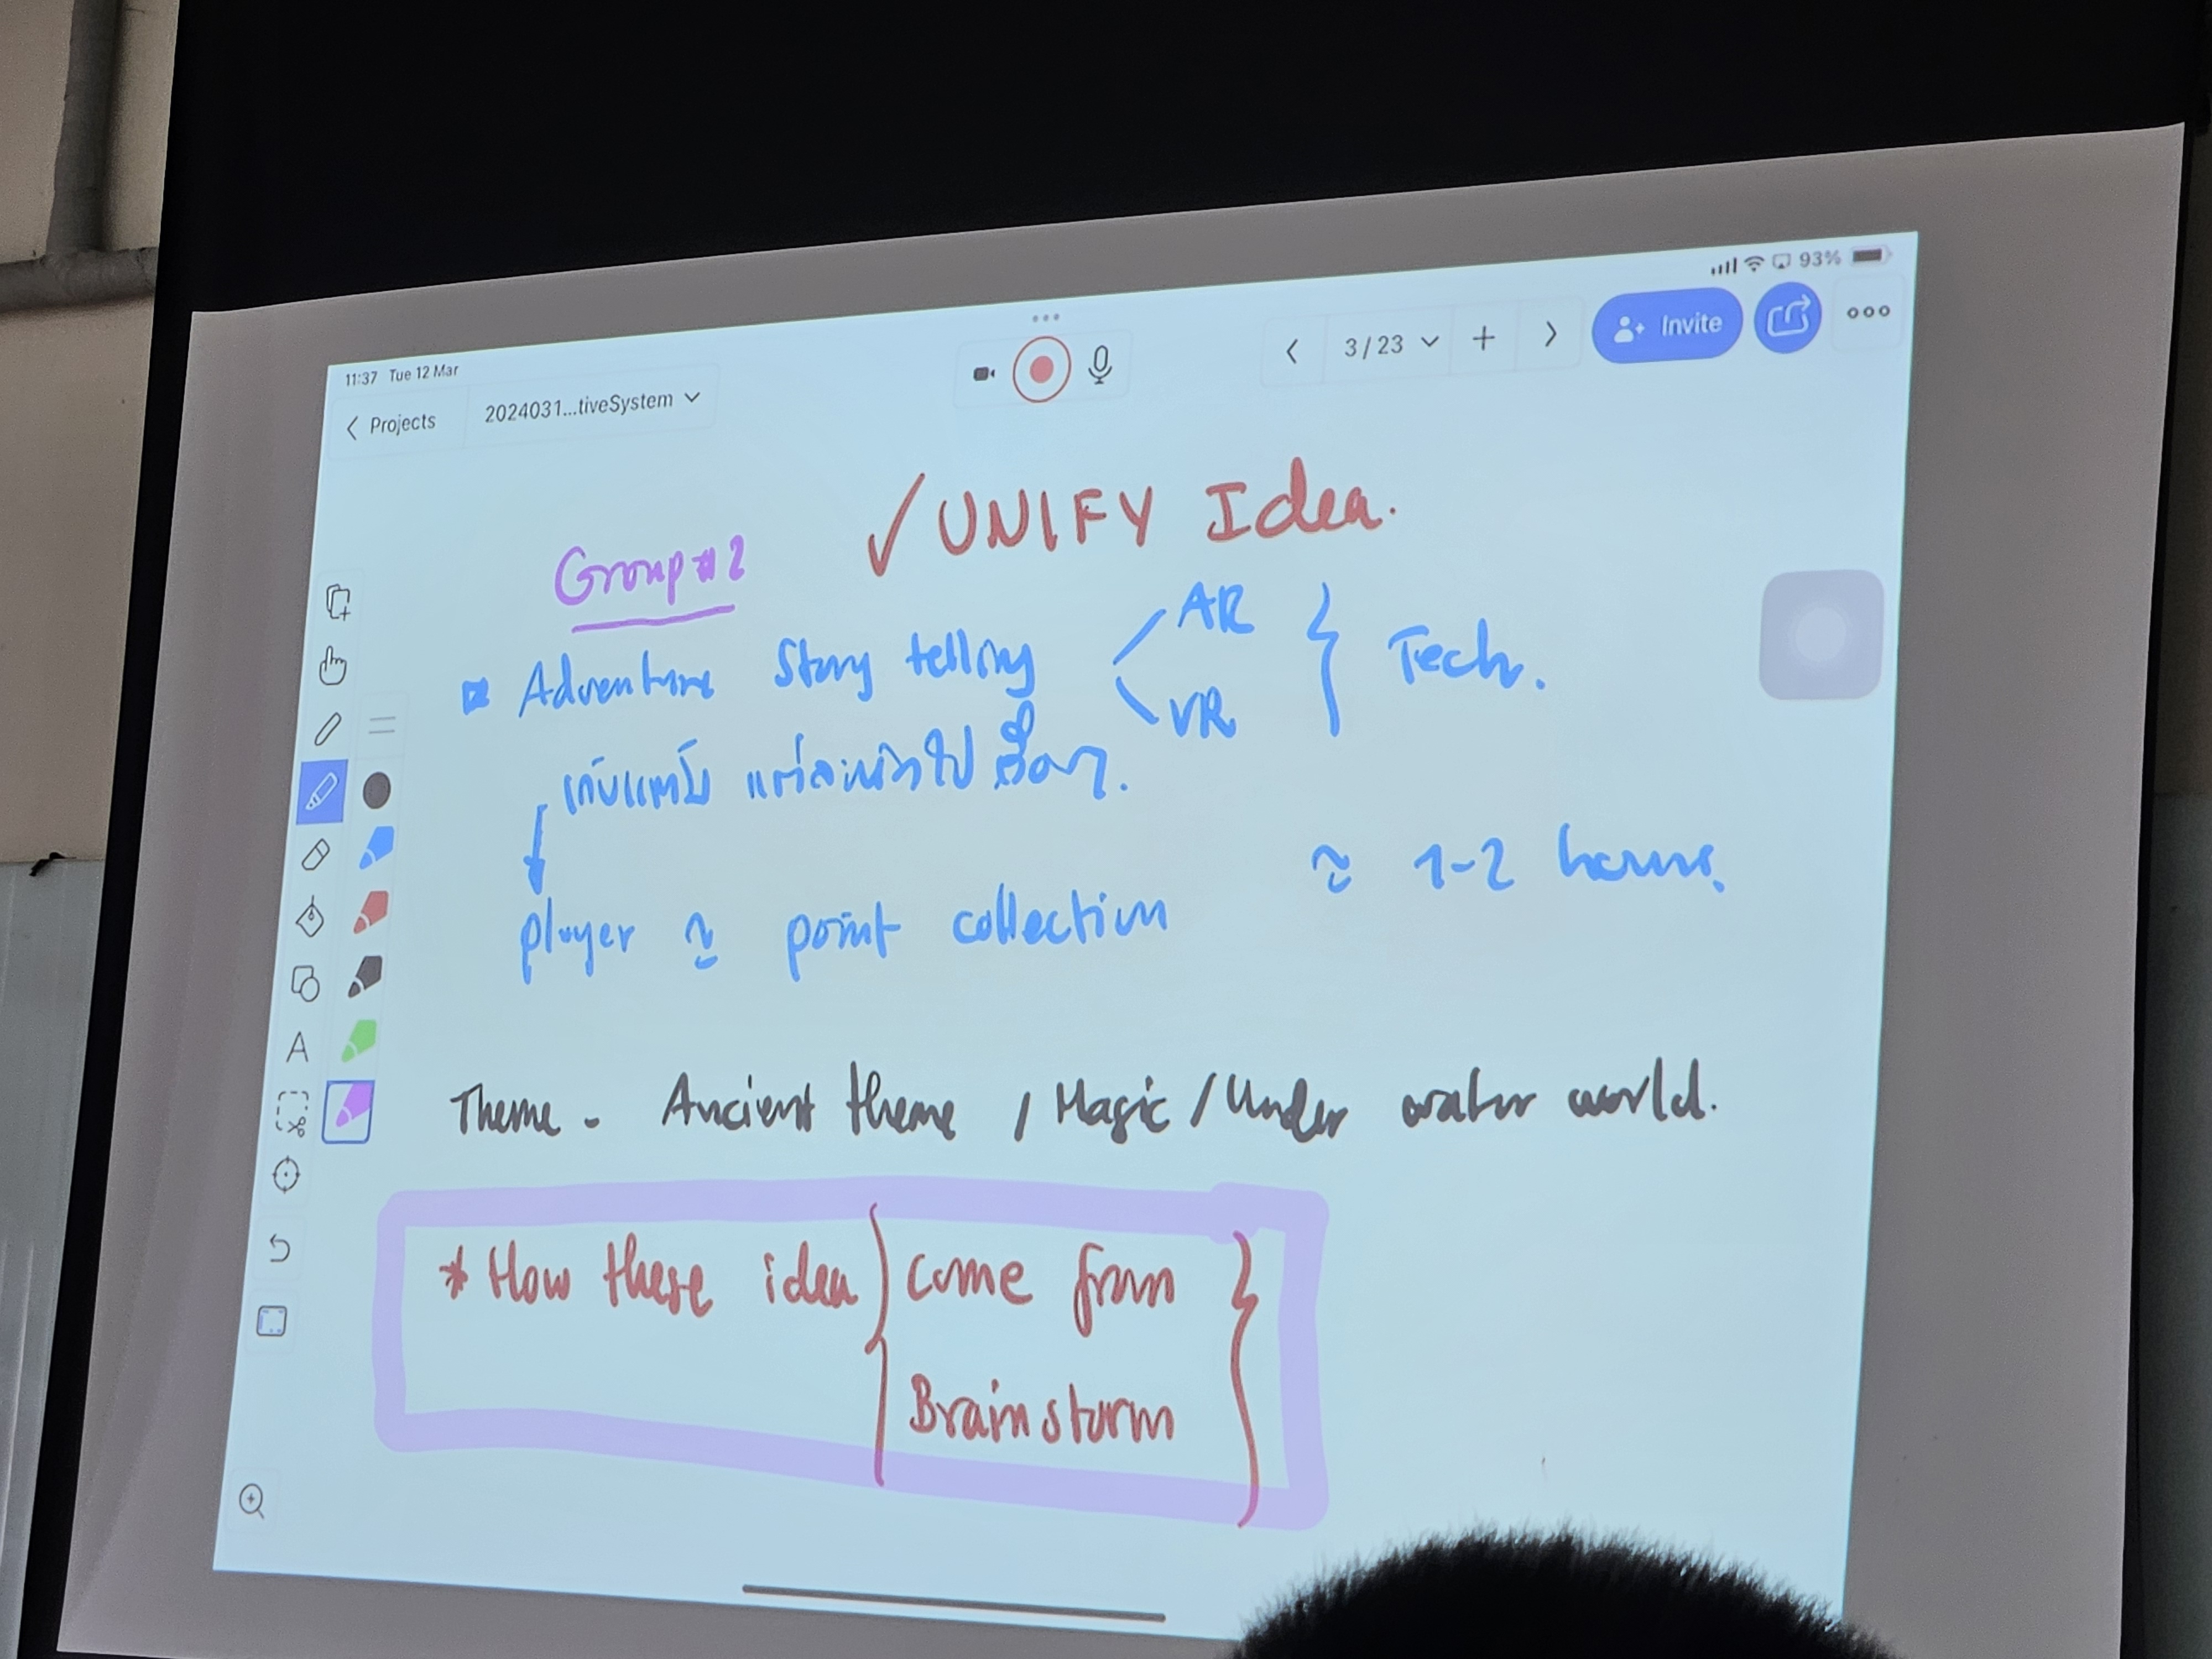 93%
11:37 Tue 12 Mar
Projects
2024031...tiveSystem
3/23
Invite
✓ UNIFY Idea.
Group #2
Adventure Story telling
AR
VR
Tech.
เก็บแต้ม แต่ละ ไป เรื่อยๆ.
player ≈ point collection
≈ 1-2 hours.
Theme - Ancient theme / Magic / Under water world.
* How these idea
come from
Brainstorm